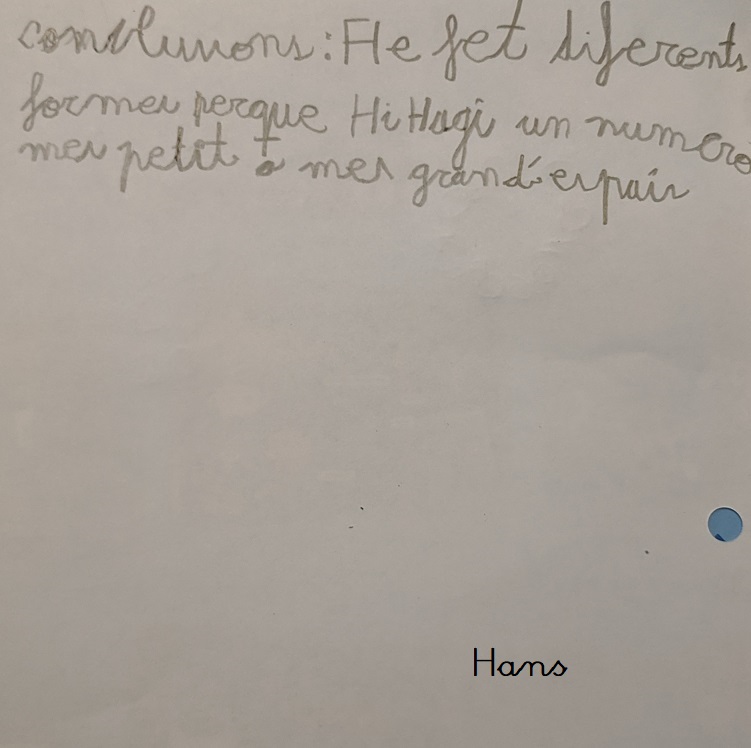 conclusions: He fet diferents
formes perque Hi Hagi un numero
mes petit o mes grand d'espais
Hans